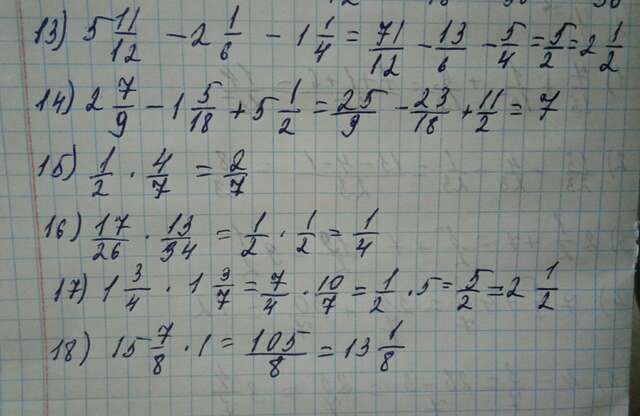 13) 5 11/12 - 2 1/6 - 1 1/4 = 71/12 - 13/6 - 5/4 = 5/2 = 2 1/2
14) 2 7/9 - 1 5/18 + 5 1/2 = 25/9 - 23/18 + 11/2 = 7
15) 1/2 · 4/7 = 2/7
16) 17/26 · 13/34 = 1/2 · 1/2 = 1/4
17) 1 3/4 · 1 3/7 = 7/4 · 10/7 = 1/2 · 5 = 5/2 = 2 1/2
18) 15 7/8 · 1 = 105/8 = 13 1/8